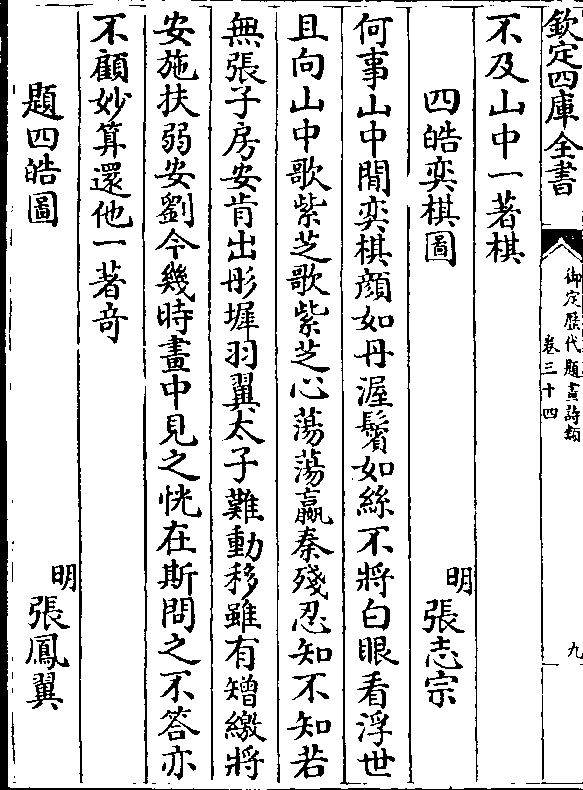 欽定四庫全書
御定歴代題畫詩類
卷三十四
九
不及山中一著棋
四皓奕棋圖
明張志宗
何事山中閒奕棋顔如丹渥鬢如絲不將白眼看浮世
且向山中歌紫芝歌紫芝心蕩蕩嬴秦殘忍知不知若
無張子房安肯出彤墀羽翼太子難動移雖有矰繳將
安施扶弱安劉今幾時畫中見之恍在斯問之不答亦
不顧妙算還他一著竒
題四皓圖
明張鳳翼